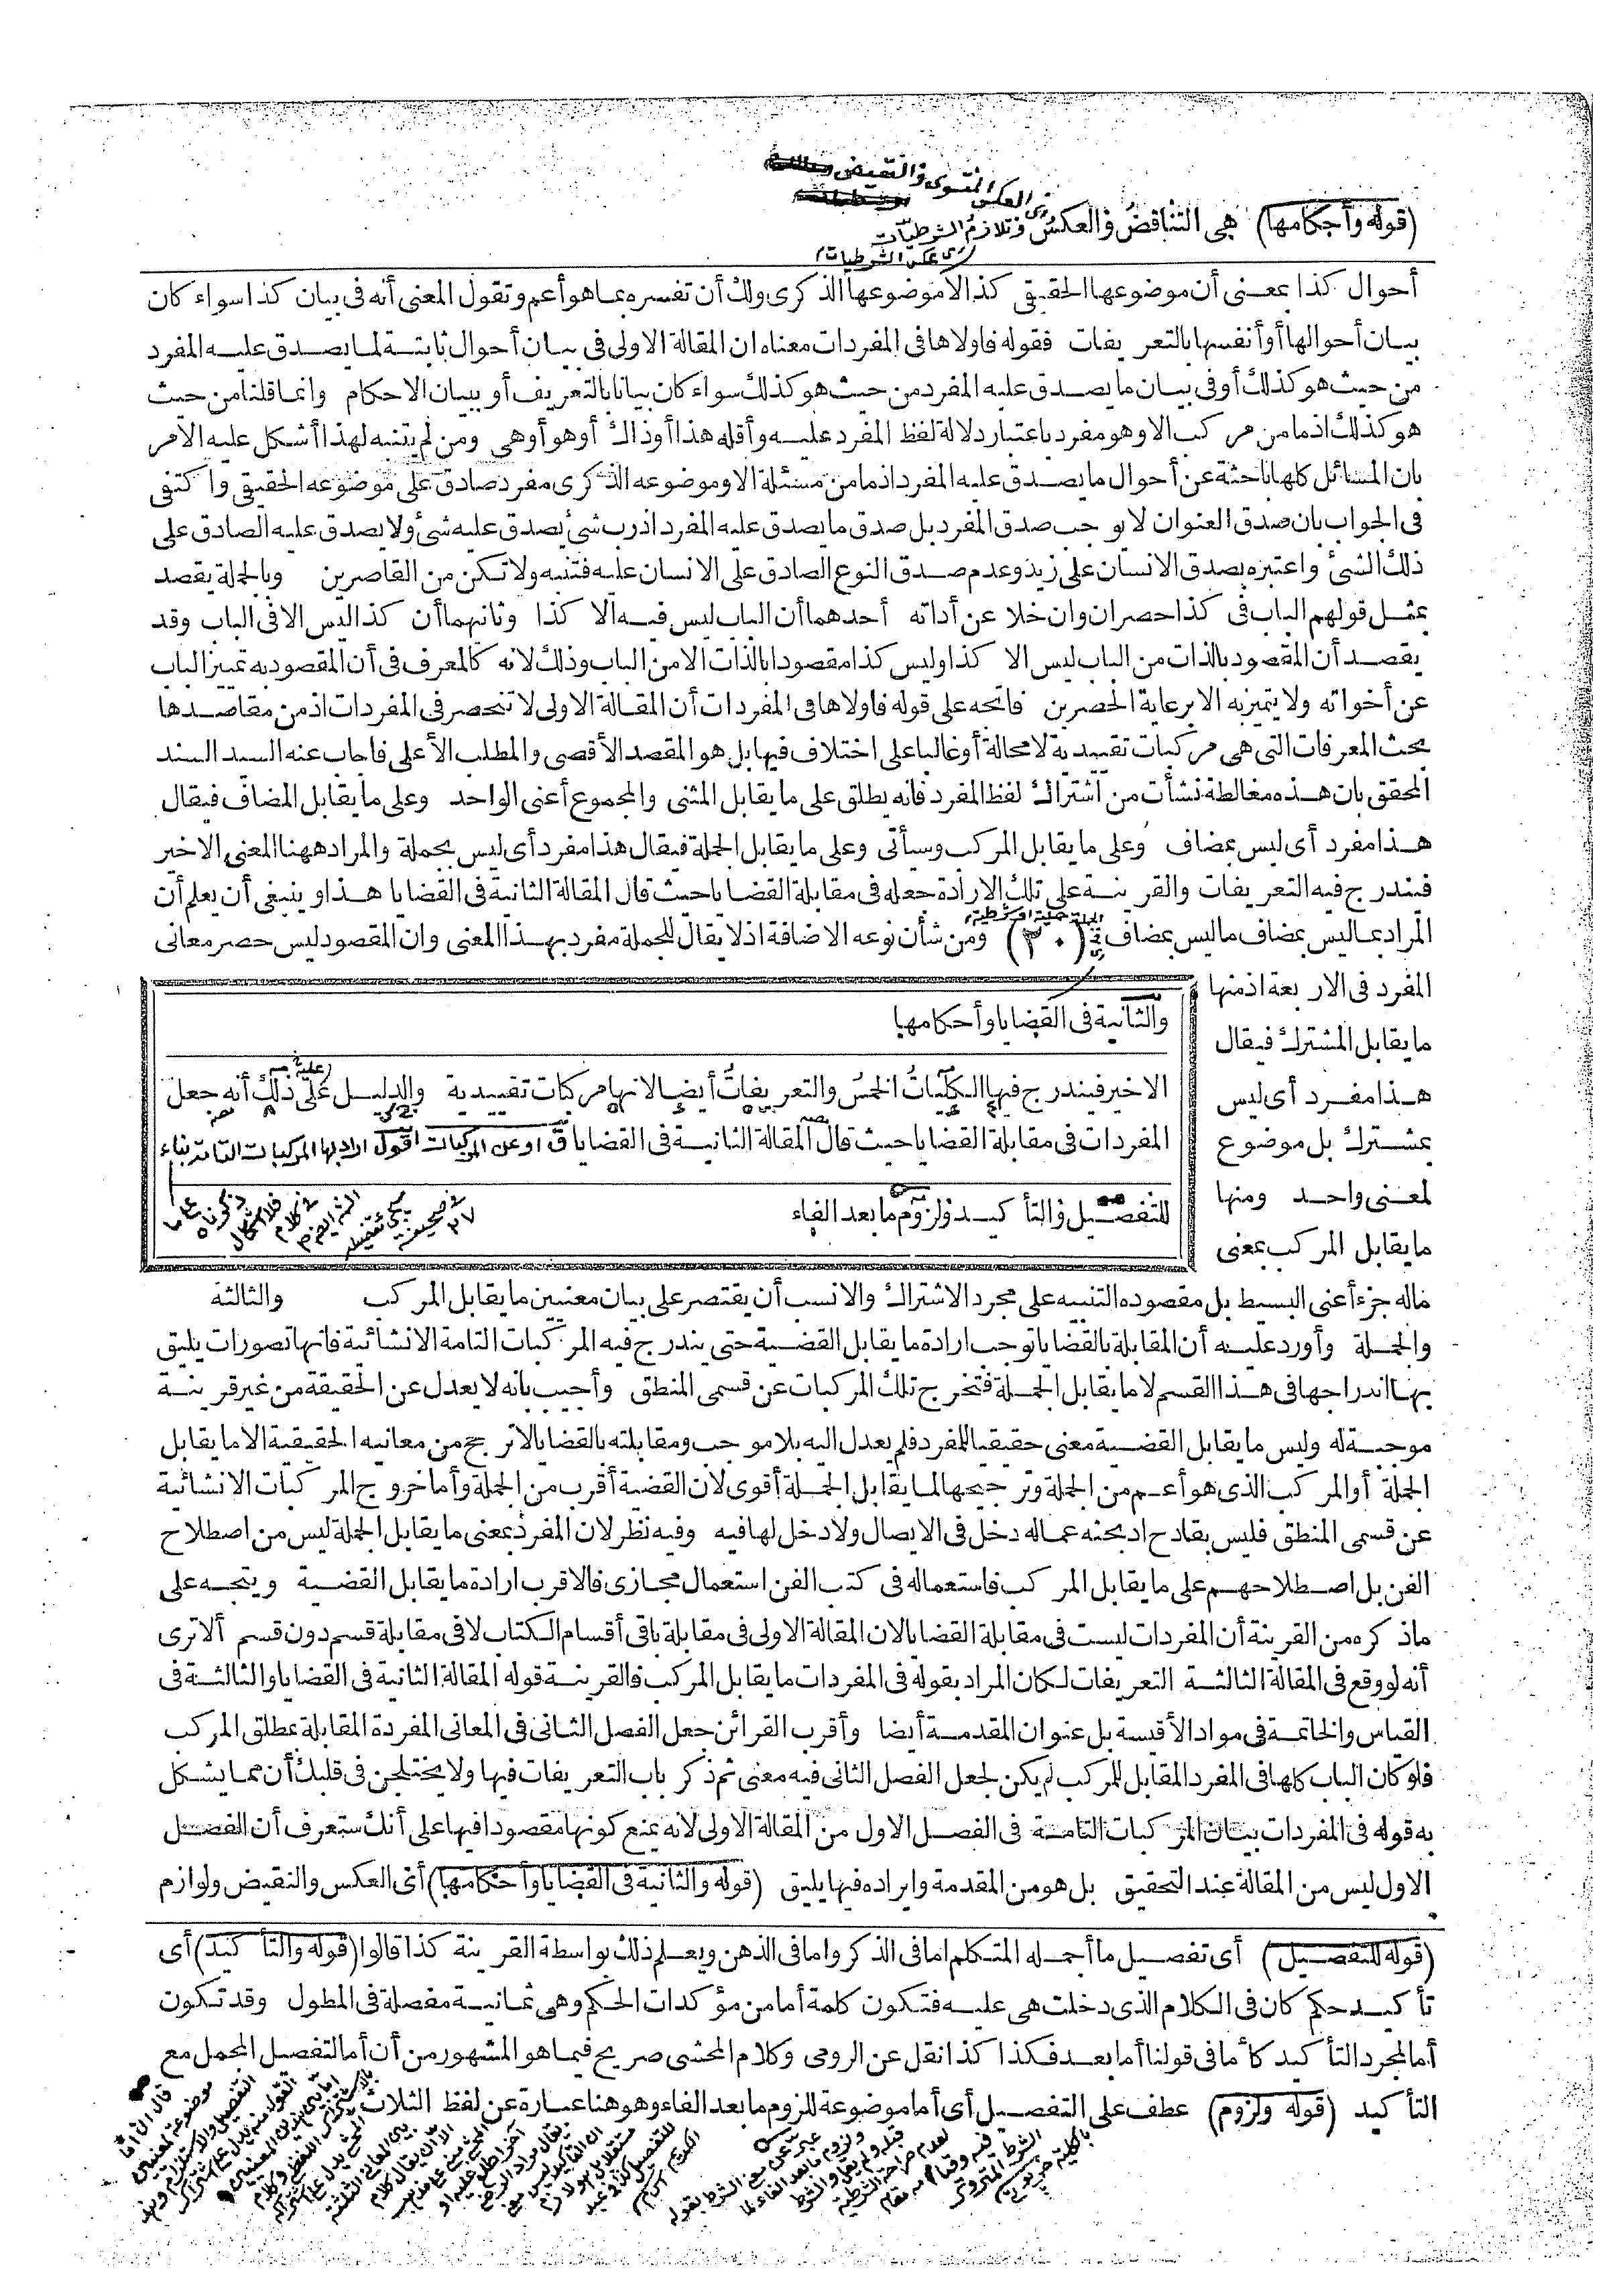 (قوله وأحكامها) هي التناقض والعكس وتلازم الشرطيات
أحوال كذا بمعنى أن موضوعها الحقيقي كذا لا موضوعها الذكرى ولك أن تفسره بما هو أعم وتقول المعنى أنه فى بيان كذا سواء كان
بيان أحوالها أو أنفسها بالتعريفات فقوله فاولاها فى المفردات معناه ان المقالة الاولى فى بيان أحوال ثابتة لما يصدق عليه المفرد
من حيث هو كذلك أو فى بيان ما يصدق عليه المفرد من حيث هو كذلك سواء كان بيانا بالتعريف أو ببيان الاحكام وانما قلنا من حيث
هو كذلك اذ ما من مركب الا وهو مفرد باعتبار دلالة لفظ المفرد عليه وأقله هذا أو ذاك أو هو أو هى ومن لم يتنبه لهذا أشكل عليه الامر
بان المسائل كلها باحثة عن أحوال ما يصدق عليه المفرد اذ ما من مسئلة الا وموضوعه الذكرى مفرد صادق على موضوعه الحقيقى واكتفى
فى الجواب بان صدق العنوان لا يوجب صدق المفرد بل صدق ما يصدق عليه المفرد اذ رب شئ يصدق عليه شئ ولا يصدق عليه الصادق على
ذلك الشئ واعتبره بصدق الانسان على زيد وعدم صدق النوع الصادق على الانسان عليه فتنبه ولا تكن من القاصرين وبالجملة يقصد
بمثل قولهم الباب فى كذا حصران وان خلا عن أداته أحدهما أن الباب ليس فيه الا كذا وثانيهما أن كذا ليس الا فى الباب وقد
يقصد أن المقصود بالذات من الباب ليس الا كذا وليس كذا مقصودا بالذات الا من الباب وذلك لانه كالمعرف فى أن المقصود به تمييز الباب
عن أخواته ولا يتميز به الا برعاية الحصرين فاتجه على قوله فاولاها فى المفردات أن المقالة الاولى لا تنحصر فى المفردات اذ من مقاصدها
بحث المعرفات التى هى مركبات تقييدية لا محالة أو غالبا على اختلاف فيها بل هو المقصد الأقصى والمطلب الأعلى فاجاب عنه السيد السند
المحقق بان هذه مغالطة نشأت من اشتراك لفظ المفرد فانه يطلق على ما يقابل المثنى والمجموع أعنى الواحد وعلى ما يقابل المضاف فيقال
هذا مفرد أى ليس بمضاف وعلى ما يقابل المركب وسيأتى وعلى ما يقابل الجملة فيقال هذا مفرد أى ليس بجملة والمراد ههنا المعنى الاخير
فيندرج فيه التعريفات والقرينة على تلك الارادة جعله فى مقابلة القضايا حيث قال المقالة الثانية فى القضايا هذا وينبغى أن يعلم أن
المراد بما ليس بمضاف ما ليس بمضاف (٣٠) ومن شأن نوعه الاضافة اذ لا يقال للجملة مفرد بهذا المعنى وان المقصود ليس حصر معانى
المفرد فى الاربعة اذ منها
ما يقابل المشترك فيقال
هذا مفرد أى ليس
بمشترك بل موضوع
لمعنى واحد ومنها
ما يقابل المركب بمعنى
والثانية فى القضايا وأحكامها
الاخير فيندرج فيها الكليات الخمس والتعريفات أيضا لانها مركبات تقييدية والدليل على ذلك أنه جعل
المفردات فى مقابلة القضايا حيث قال المقالة الثانية فى القضايا
للتفصيل والتأكيد ولزوم ما بعد الفاء
ماله جزء أعنى البسيط بل مقصوده التنبيه على مجرد الاشتراك والانسب أن يقتصر على بيان معنيين ما يقابل المركب والثالثة
والجملة وأورد عليه أن المقابلة بالقضايا توجب ارادة ما يقابل القضية حتى يندرج فيه المركبات التامة الانشائية فانها تصورات يليق
بها اندراجها فى هذا القسم لا ما يقابل الجملة فتخرج تلك المركبات عن قسمى المنطق وأجيب بانه لا يعدل عن الحقيقة من غير قرينة
موجبة له وليس ما يقابل القضية معنى حقيقيا للمفرد فلم يعدل اليه بلا موجب ومقابلته بالقضايا لا ترجح من معانيه الحقيقية الا ما يقابل
الجملة أو المركب الذى هو أعم من الجملة وترجيحها لما يقابل الجملة أقوى لان القضية أقرب من الجملة وأما خروج المركبات الانشائية
عن قسمى المنطق فليس بقادح اذ بحثه عما له دخل فى الايصال ولا دخل لها فيه وفيه نظر لان المفرد بمعنى ما يقابل الجملة ليس من اصطلاح
الفن بل اصطلاحهم على ما يقابل المركب فاستعماله فى كتب الفن استعمال مجازى فالاقرب ارادة ما يقابل القضية ويتجه على
ما ذكره من القرينة أن المفردات ليست فى مقابلة القضايا لان المقالة الاولى فى مقابلة باقى أقسام الكتاب لا فى مقابلة قسم دون قسم ألا ترى
أنه لو وقع فى المقالة الثالثة التعريفات لكان المراد بقوله فى المفردات ما يقابل المركب فالقرينة قوله المقالة الثانية فى القضايا والثالثة فى
القياس والخاتمة فى مواد الأقيسة بل عنوان المقدمة أيضا وأقرب القرائن جعل الفصل الثانى فى المعانى المفردة المقابلة بمطلق المركب
فلو كان الباب كلها فى المفرد المقابل للمركب لم يكن لجعل الفصل الثانى فيه معنى ثم ذكر باب التعريفات فيها ولا يختلجن فى قلبك أن مما يشكل
به قوله فى المفردات بيان المركبات التامة فى الفصل الاول من المقالة الاولى لانه يمنع كونها مقصودا فيها على أنك ستعرف أن الفصل
الاول ليس من المقالة عند التحقيق بل هو من المقدمة وايراده فيها يليق (قوله والثانية فى القضايا وأحكامها) أى العكس والنقيض ولوازم
(قوله للتفصيل) أى تفصيل ما أجمله المتكلم اما فى الذكر واما فى الذهن ويعلم ذلك بواسطة القرينة كذا قالوا (قوله والتأكيد) أى
تأكيد حكم كان فى الكلام الذى دخلت هى عليه فتكون كلمة أما من مؤكدات الحكم وهى ثمانية مفصلة فى المطول وقد تكون
أما لمجرد التأكيد كأما فى قولنا أما بعد فكذا كذا نقل عن الرومى وكلام المحشى صريح فيما هو المشهور من أن أما لتفصيل المجمل مع
التأكيد (قوله ولزوم) عطف على التفصيل أى أما موضوعة للزوم ما بعد الفاء وهو هنا عبارة عن لفظ الثلاث